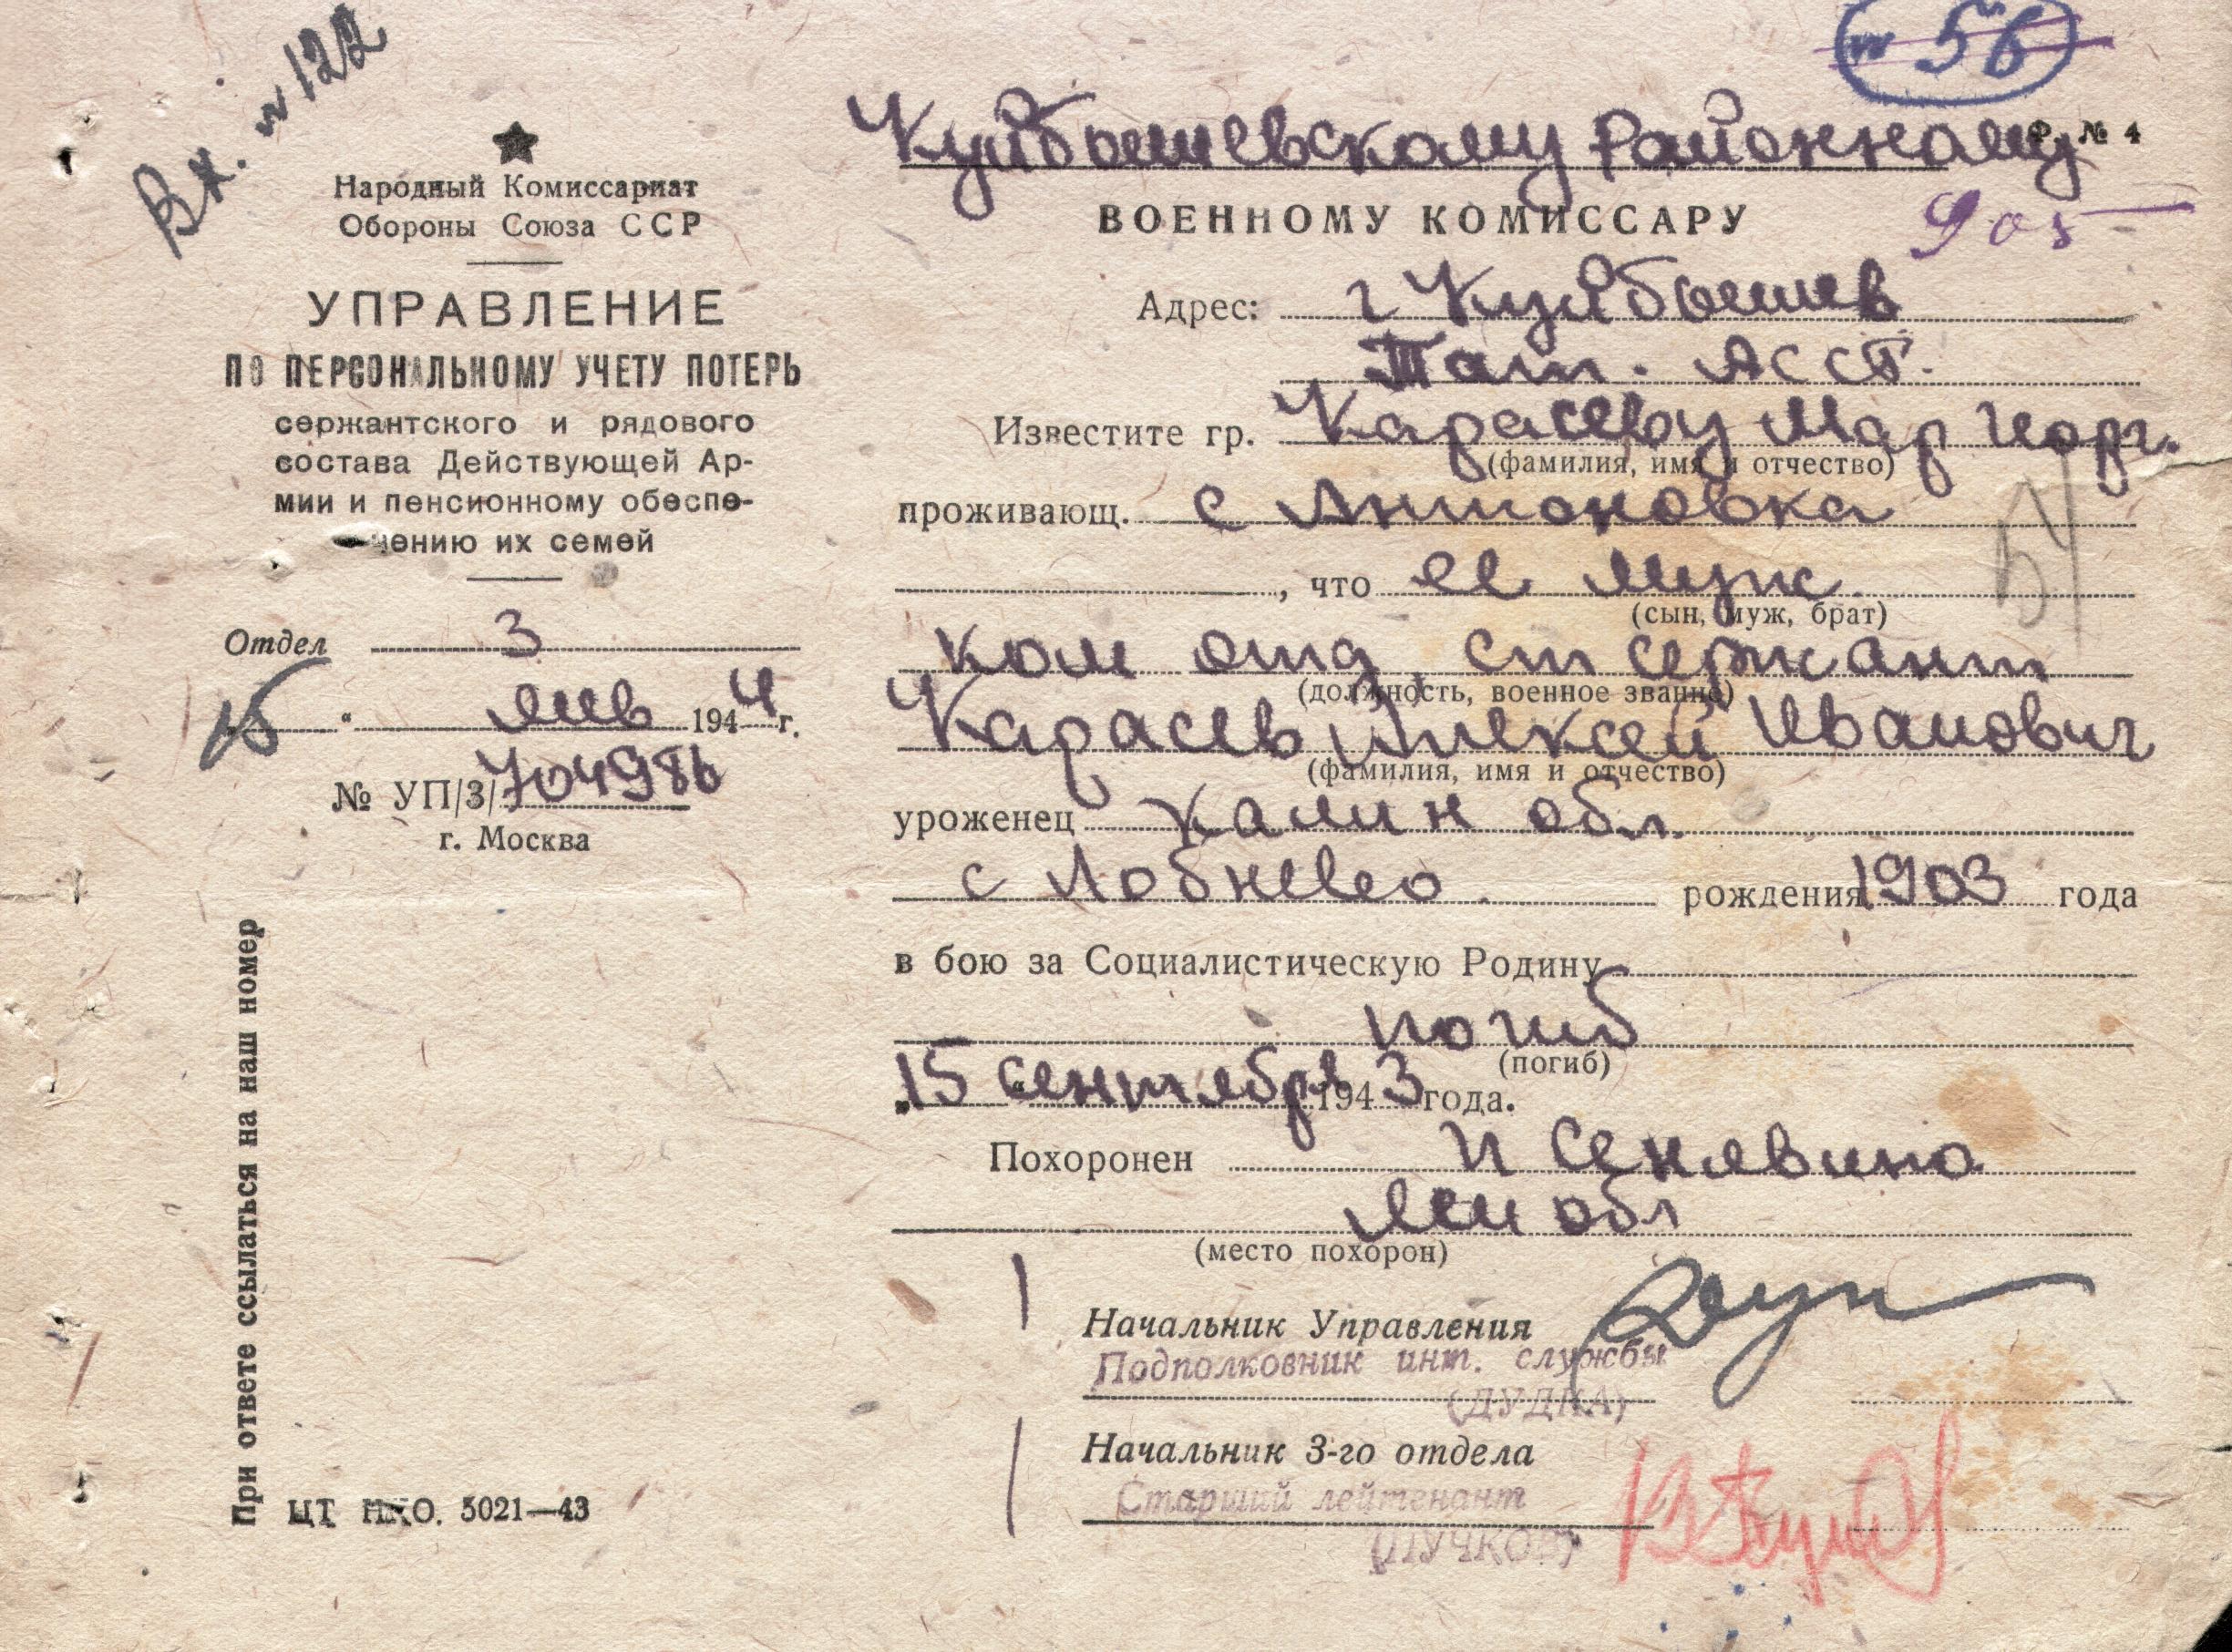 Вх. № 122
Народный Комиссариат
Обороны Союза ССР
УПРАВЛЕНИЕ
ПО ПЕРСОНАЛЬНОМУ УЧЕТУ ПОТЕРЬ
сержантского и рядового
состава Действующей Ар-
мии и пенсионному обеспе-
чению их семей
Отдел 3
15 " янв 1944 г.
№ УП/3/704986
г. Москва
При ответе ссылаться на наш номер
ЦТ НКО. 5021—43
№ 56
Ф. № 4
Куйбышевскому районному
ВОЕННОМУ КОМИССАРУ
905
Адрес: г Куйбышев
Тат. АССР.
Известите гр. Карасеву Мар Георг.
(фамилия, имя и отчество)
проживающ. с Антоновка
, что ее муж
(сын, муж, брат)
ком отд, ст сержант
(должность, военное звание)
Карасев Алексей Иванович
(фамилия, имя и отчество)
уроженец Калин обл.
с Лобнево рождения 1903 года
в бою за Социалистическую Родину
погиб
(погиб)
„15 " сентября 1943 года.
Похоронен п Сенявино
Лен обл
(место похорон)
Начальник Управления
Подполковник инт. службы
(ДУДКА)
Начальник 3-го отдела
Старший лейтенант
(ПУЧКОВ)